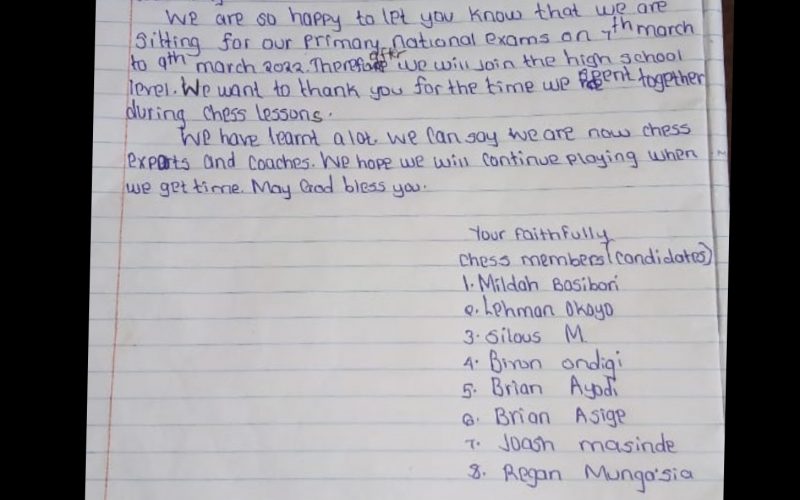 We are so happy to let you know that we are
sitting for our primary national exams on 7th march
to 9th march 2022. Thereafter we will join the high school
level. We want to thank you for the time we spent together
during chess lessons.
We have learnt alot. we can say we are now chess
experts and coaches. We hope we will continue playing when
we get time. May God bless you.
Your faithfully
chess members (candidates)
1. Mildah Basibori
2. Lehman Okoyo
3. Silous M.
4. Biron ondigi
5. Brian Ayodi
6. Brian Asige
7. Joash masinde
8. Regan Munga'sia